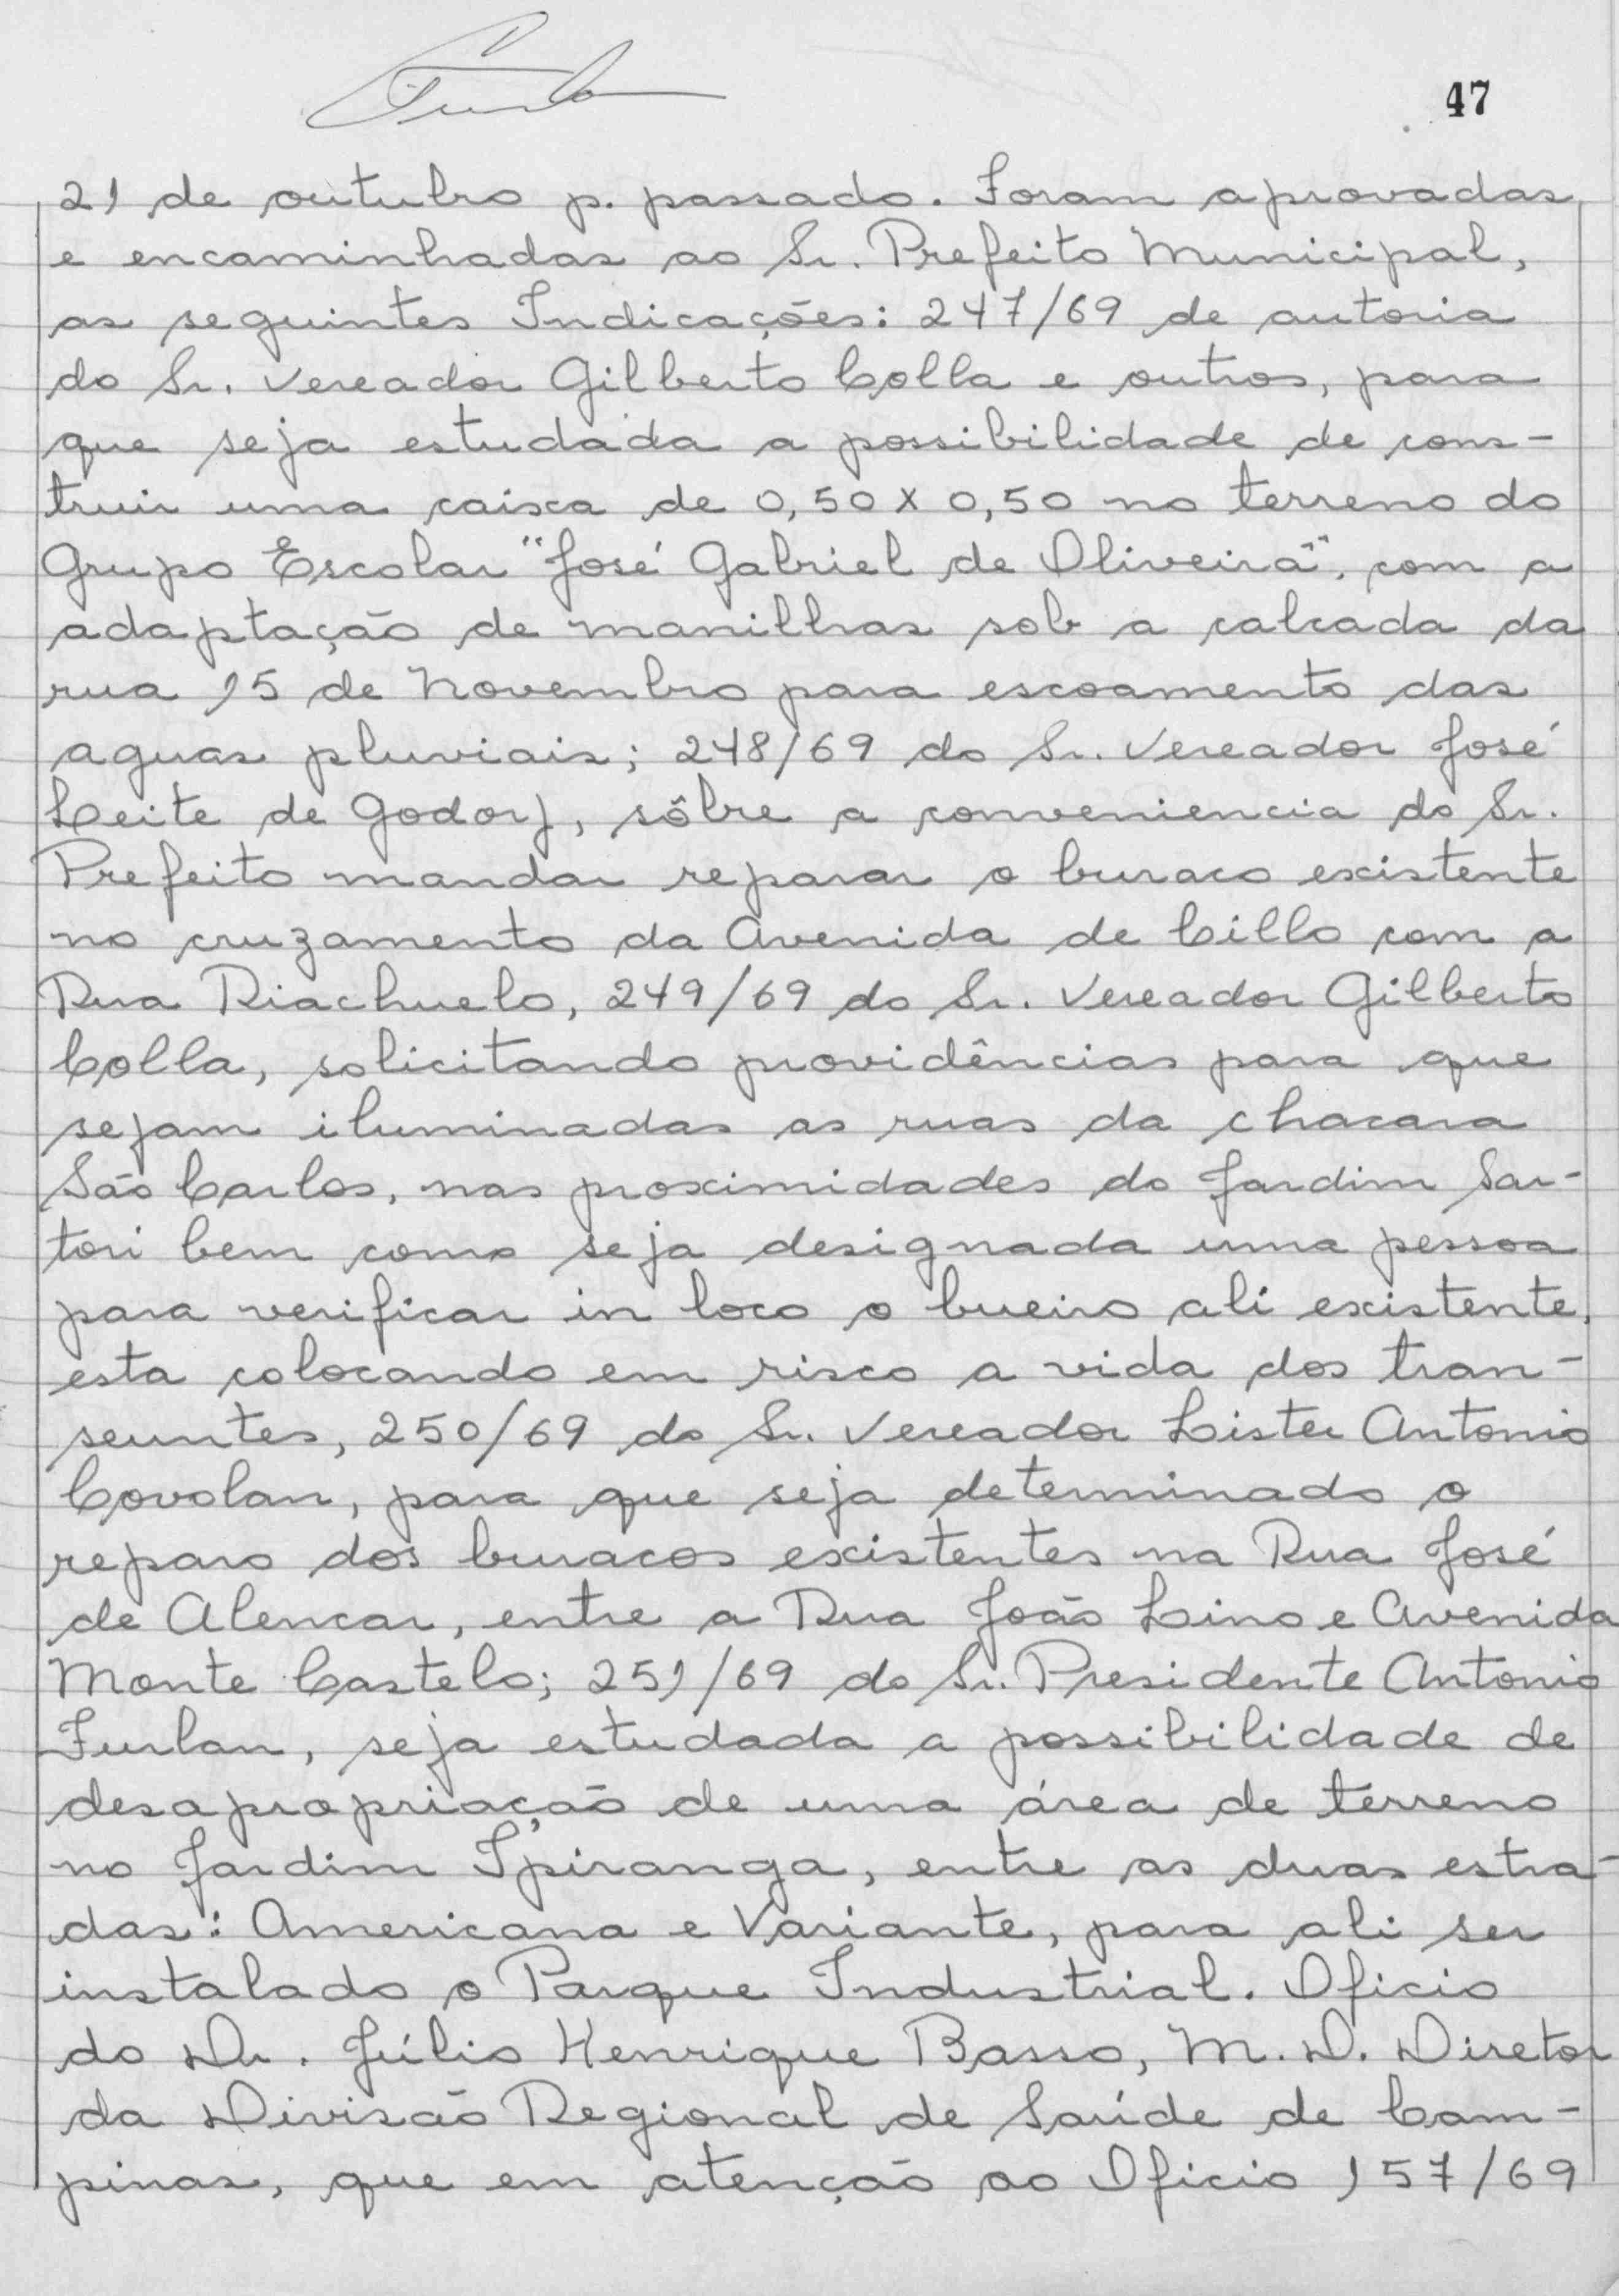 47
21 de outubro p. passado. Foram aprovadas
e encaminhadas ao Sr. Prefeito Municipal,
as seguintes Indicações: 247/69 de autoria
do Sr. Vereador Gilberto Colla e outros, para
que seja estudada a possibilidade de cons-
truir uma caixa de 0,50 x 0,50 no terreno do
Grupo Escolar "José Gabriel de Oliveira", com a
adaptação de manilhas sob a calcada da
rua 15 de Novembro para escoamento das
aguas pluviais; 248/69 do Sr. Vereador José
Leite de Godoy, sôbre a conveniencia do Sr.
Prefeito mandar reparar o buraco existente
no cruzamento da Avenida de Cillo com a
Rua Riachuelo, 249/69 do Sr. Vereador Gilberto
Colla, solicitando providências para que
sejam iluminadas as ruas da chacara
São Carlos, nas proximidades do Jardim Sar-
tori bem como seja designada uma pessoa
para verificar in loco o bueiro ali existente,
esta colocando em risco a vida dos tran-
seuntes, 250/69 do Sr. Vereador Lister Antonio
Covolan, para que seja determinado o
reparo dos buracos existentes na Rua José
de Alencar, entre a Rua João Lino e Avenida
Monte Castelo; 251/69 do Sr. Presidente Antonio
Furlan, seja estudada a possibilidade de
desapropriação de uma área de terreno
no Jardim Ipiranga, entre as duas estra-
das: Americana e Variante, para ali ser
instalado o Parque Industrial. Oficio
do Dr. Júlio Henrique Basso, M. D. Diretor
da Divisão Regional de Saúde de Cam-
pinas, que em atenção ao Oficio 157/69